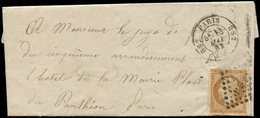 PARIS
A Monsieur le juge de
du cinquième arrondissement
l'hotel de la Mairie Place
du Panthéon Paris